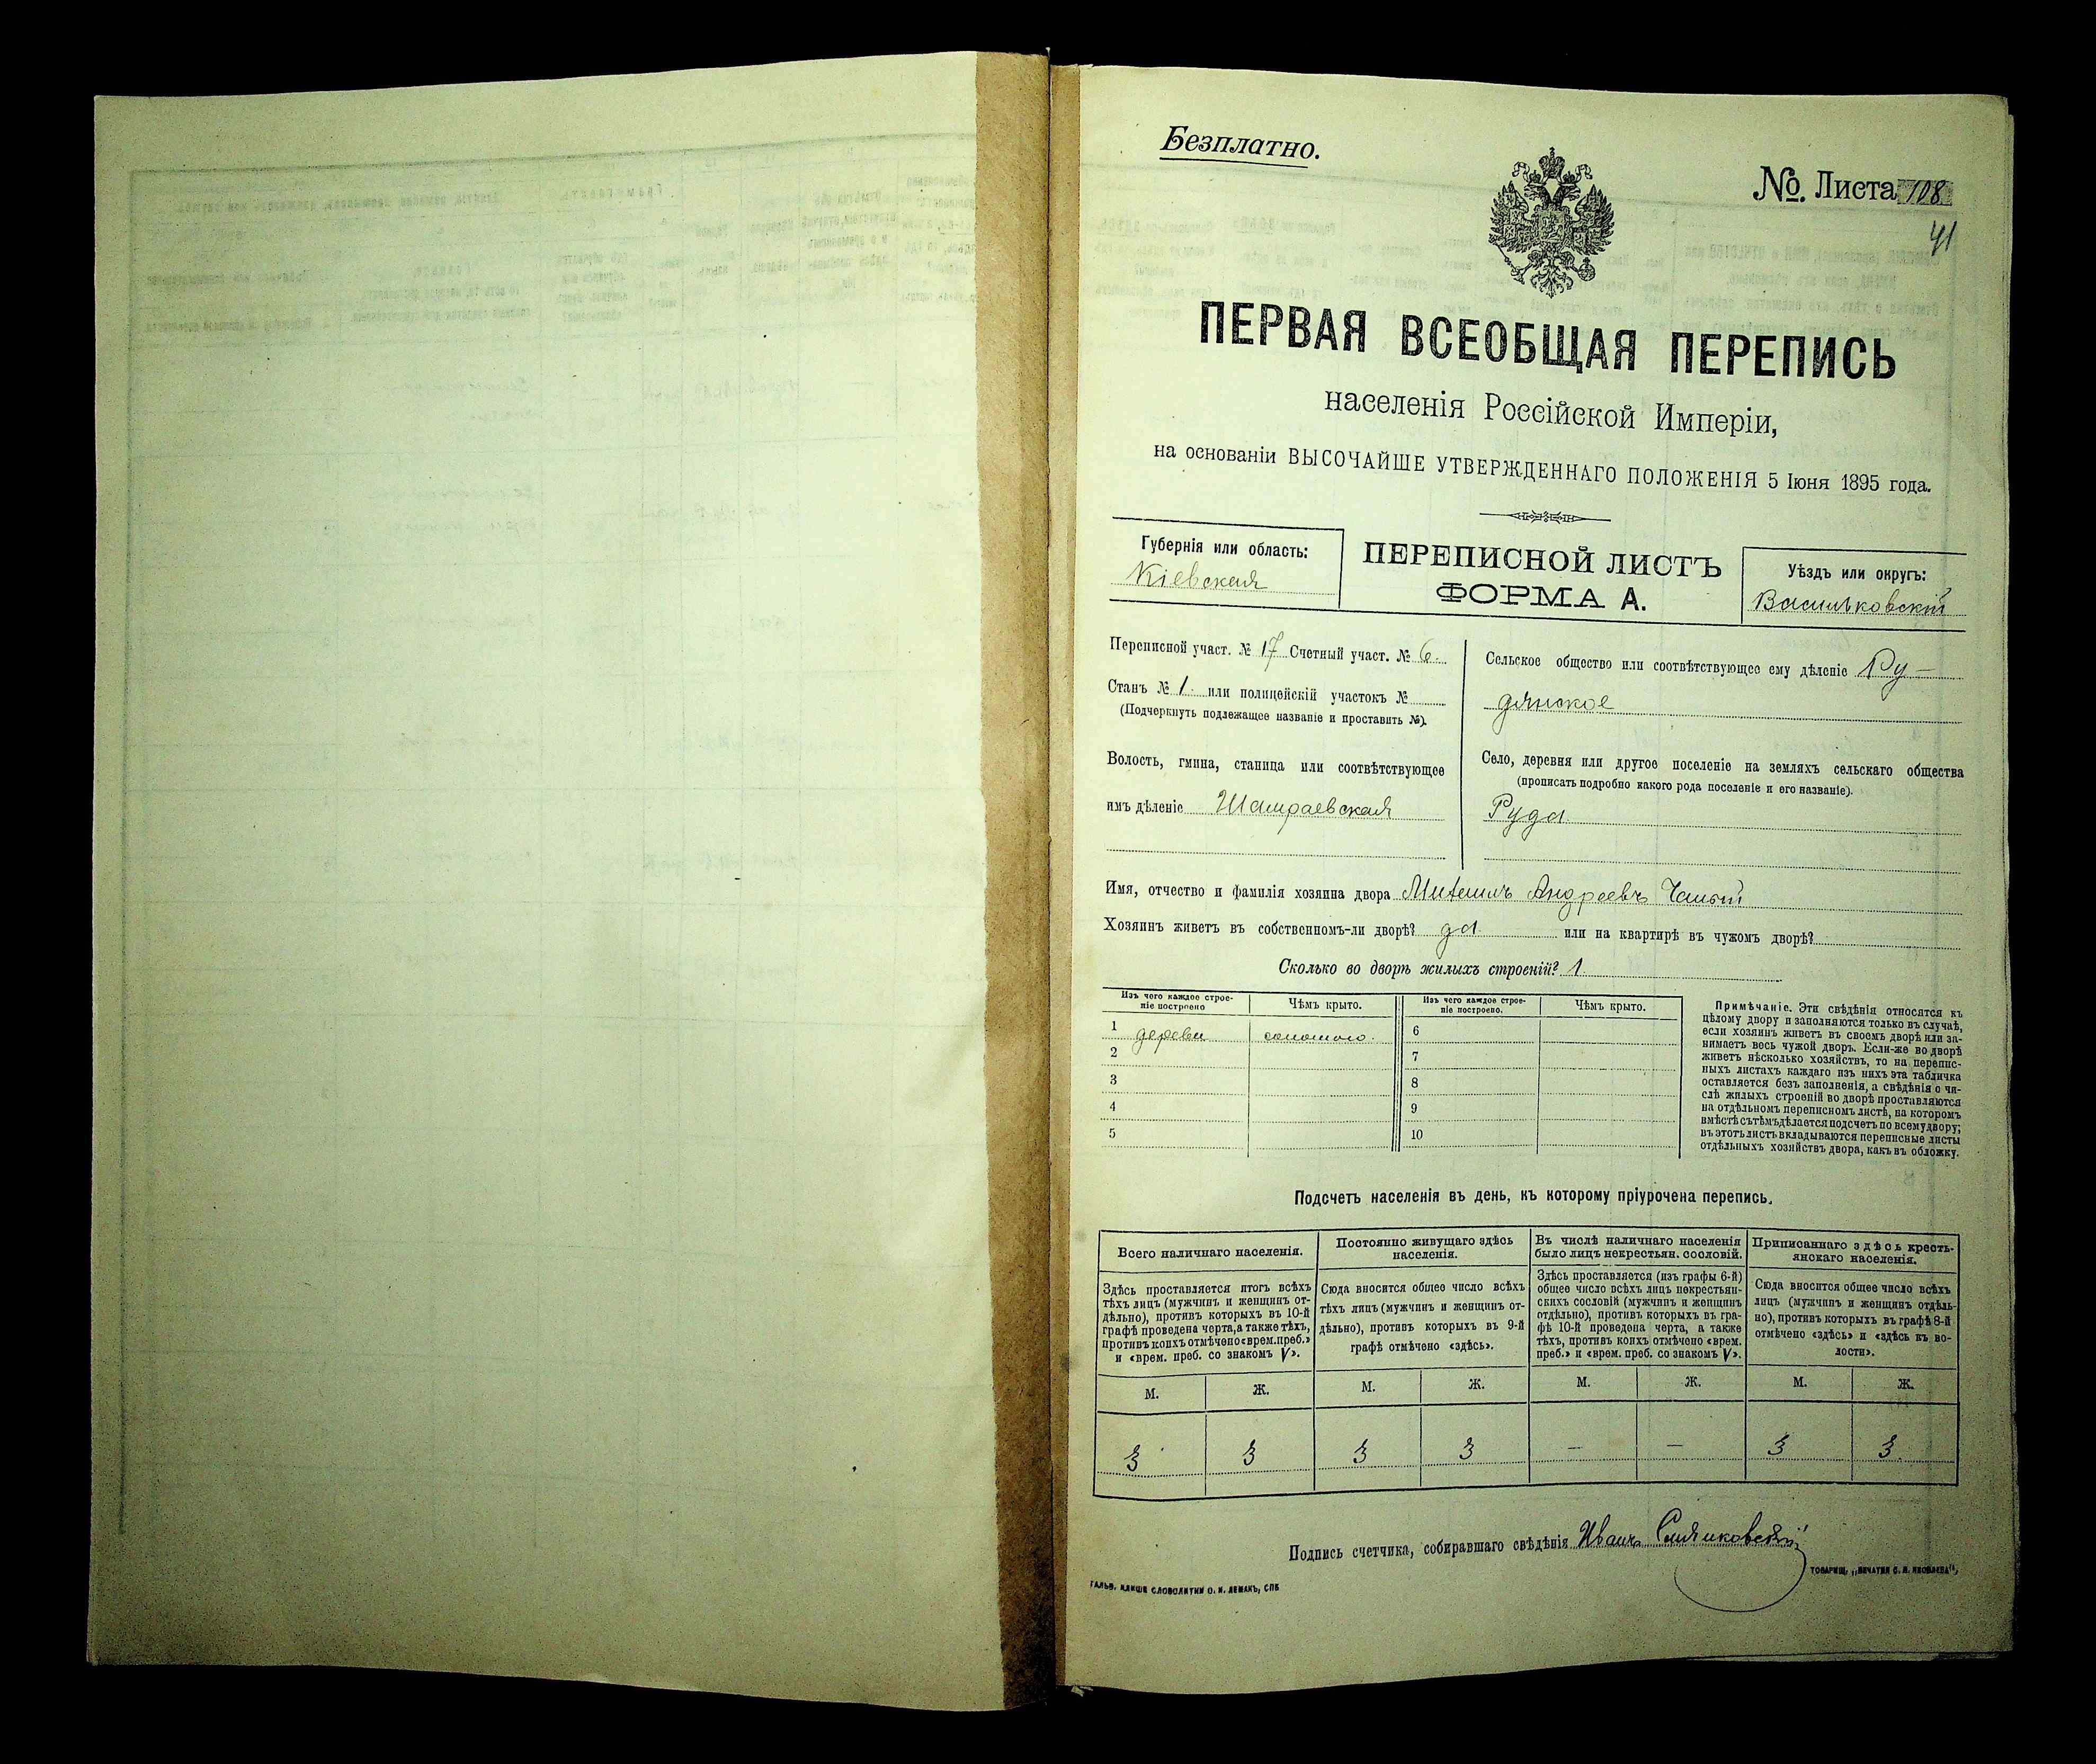 Безплатно.
№. Листа 108
41
ПЕРВАЯ ВСЕОБЩАЯ ПЕРЕПИСЬ
населенія Россійской Имперіи,
на основаніи ВЫСОЧАЙШЕ УТВЕРЖДЕННАГО ПОЛОЖЕНІЯ 5 Іюня 1895 года.
Губернія или область:
Кіевская
ПЕРЕПИСНОЙ ЛИСТЪ
ФОРМА А.
Уѣздъ или округъ:
Васильковскій
Переписной участ. № 17 Счетный участ. № 6.
Станъ № 1. или полицейскій участокъ №
(Подчеркнуть подлежащее названіе и проставить №).
Волость, гмина, станица или соотвѣтствующее
имъ дѣленіе Шамраевская
Сельское общество или соотвѣтствующее ему дѣленіе Ру-
дянское
Село, деревня или другое поселеніе на земляхъ сельскаго общества
(прописать подробно какого рода поселеніе и его названіе).
Руда
Имя, отчество и фамилія хозяина двора Андреевъ
Хозяинъ живетъ въ собственномъ-ли дворѣ? да или на квартирѣ въ чужомъ дворѣ?
Сколько во дворѣ жилыхъ строеній? 1.
Изъ чего каждое строе-
ніе построено
Чѣмъ крыто.
Изъ чего каждое строе-
ніе построено.
Чѣмъ крыто.
1 деревы соломою.
2
3
4
5
6
7
8
9
10
Примѣчаніе. Эти свѣдѣнія относятся къ
цѣлому двору и заполняются только въ случаѣ,
если хозяинъ живетъ въ своемъ дворѣ или за-
нимаетъ весь чужой дворъ. Если-же во дворѣ
живетъ нѣсколько хозяйствъ, то на перепис-
ныхъ листахъ каждаго изъ нихъ эта табличка
оставляется безъ заполненія, а свѣдѣнія о чи-
слѣ жилыхъ строеній во дворѣ проставляются
на отдѣльномъ переписномъ листѣ, на которомъ
вмѣстѣ съ тѣмъ дѣлается подсчетъ по всему двору;
въ этотъ листъ вкладываются переписные листы
отдѣльныхъ хозяйствъ двора, какъ въ обложку.
Подсчетъ населенія въ день, къ которому пріурочена перепись.
Всего наличнаго населенія.
Здѣсь проставляется итогъ всѣхъ
тѣхъ лицъ (мужчинъ и женщинъ от-
дѣльно), противъ которыхъ въ 10-й
графѣ проведена черта, а также тѣхъ,
противъ коихъ отмѣчено «врем. преб.»
и «врем. преб. со знакомъ V».
Постоянно живущаго здѣсь
населенія.
Сюда вносится общее число всѣхъ
тѣхъ лицъ (мужчинъ и женщинъ от-
дѣльно), противъ которыхъ въ 9-й
графѣ отмѣчено «здѣсь».
Въ числѣ наличнаго населенія
было лицъ некрестьян. сословій.
Здѣсь проставляется (изъ графы 6-й)
общее число всѣхъ лицъ некрестьян-
скихъ сословій (мужчинъ и женщинъ
отдѣльно), противъ которыхъ въ гра-
фѣ 10-й проведена черта, а также
тѣхъ, противъ коихъ отмѣчено «врем.
преб.» и «врем. преб. со знакомъ V».
Приписаннаго здѣсь кресть-
янскаго населенія.
Сюда вносится общее число всѣхъ
лицъ (мужчинъ и женщинъ отдѣль-
но), противъ которыхъ въ графѣ 8-й
отмѣчено «здѣсь» и «здѣсь къ во-
лости».
М. Ж. М. Ж. М. Ж. М. Ж.
3 3 3 3 — — 3 3
Подпись счетчика, собиравшаго свѣдѣнія Иванъ
ГАЛЬВ. КЛИШЕ СЛОВОЛИТНИ О. И. ЛЕМАНЪ, СПБ
ТОВАРИЩ. „ПЕЧАТНЯ С. П. ЯКОВЛЕВА“,